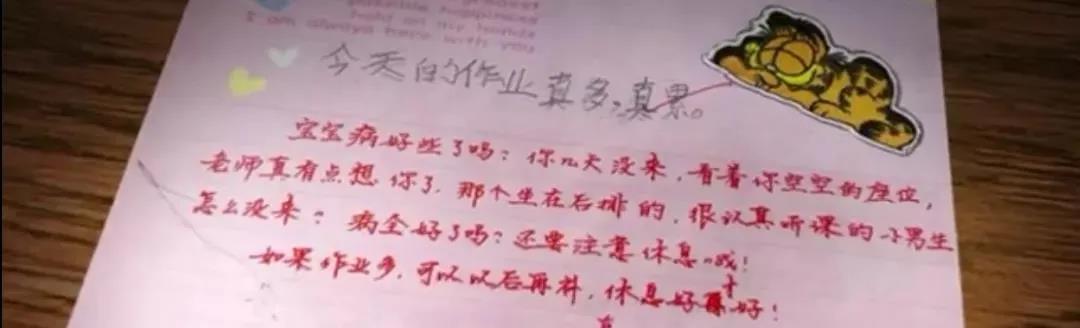 possible happiness
hold on my hands
I am always here with you
今天的作业真多,真累。
宝宝病好些了吗?你几天没来,看着你空空的座位,
老师真有点想你了,那个坐在后排的,很认真听课的小男生
怎么没来?病全好了吗?还要注意休息哦!
如果作业多,可以以后再补,休息好
好!